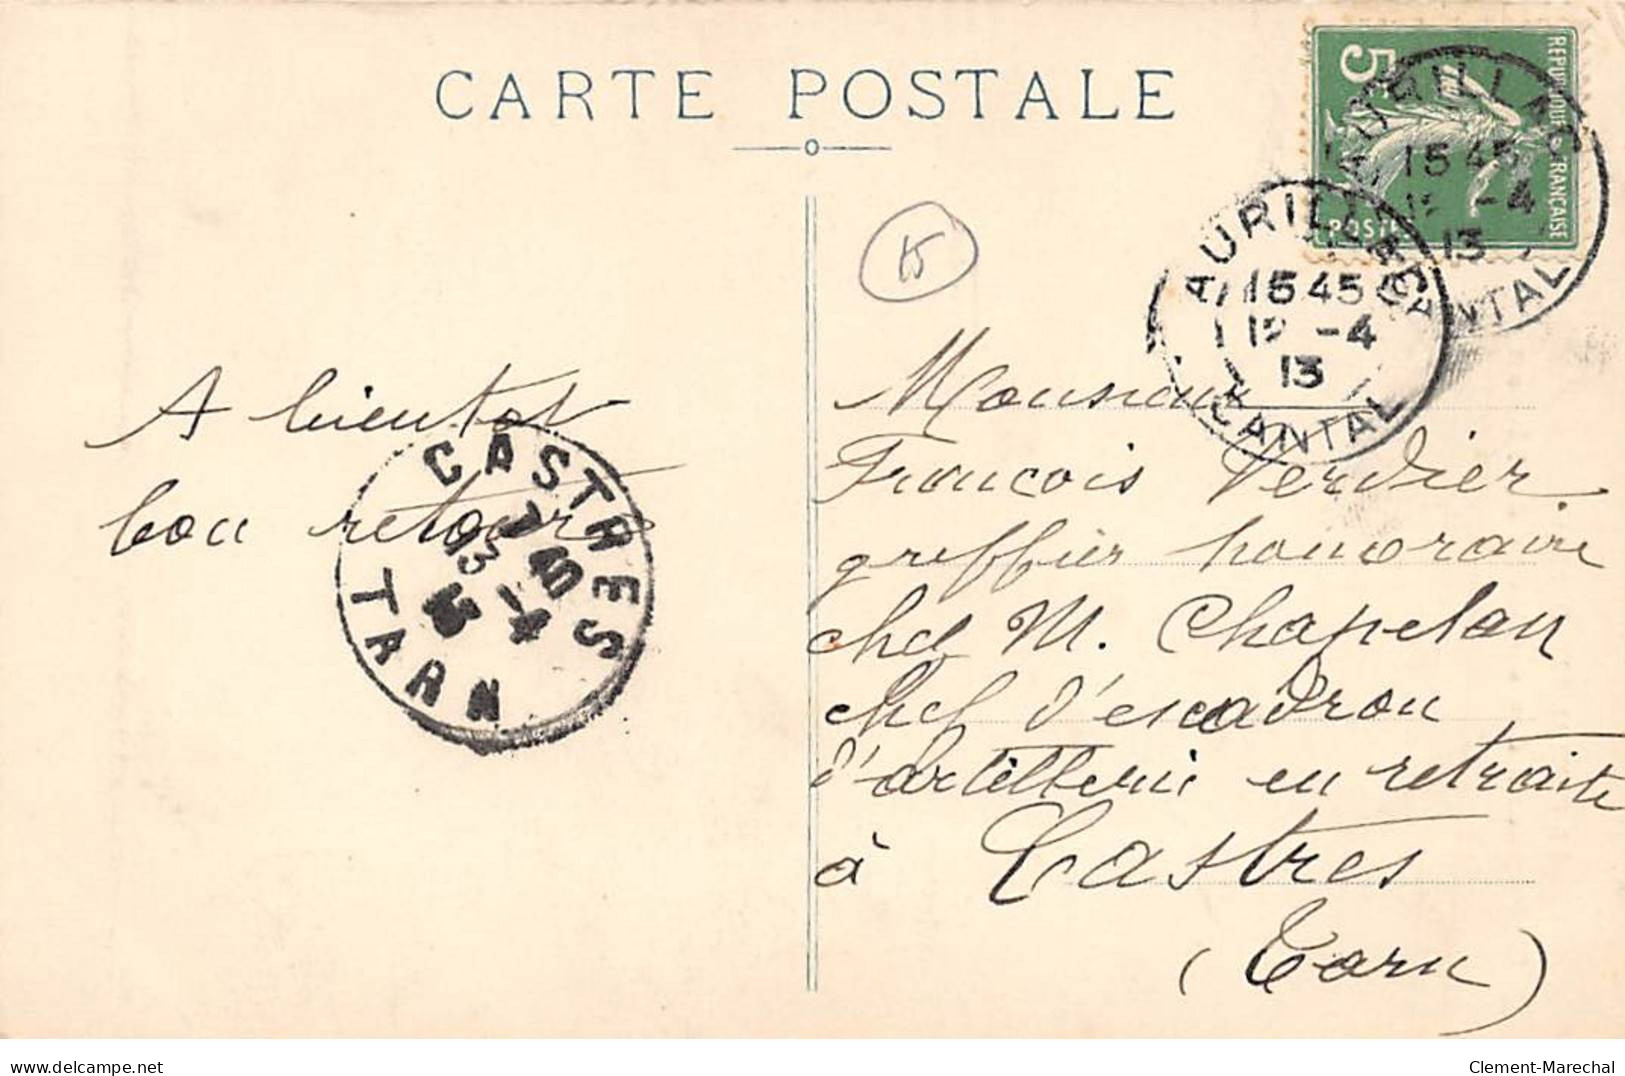 CARTE POSTALE
REPUBLIQUE FRANÇAISE
5c
POSTES
AURILLAC
15 45
12 -4
13
CANTAL
AURILLAC
15 45
12 -4
13
CANTAL
15
A bientot
bon retour
CASTRES
13 -4
13
TARN
Monsieur
François Verdier
greffier honoraire
chez M. Chapelan
chef d'escadron
d'artillerie en retraite
à Castres
(Tarn)
delcampe.net
Clement-Marechal